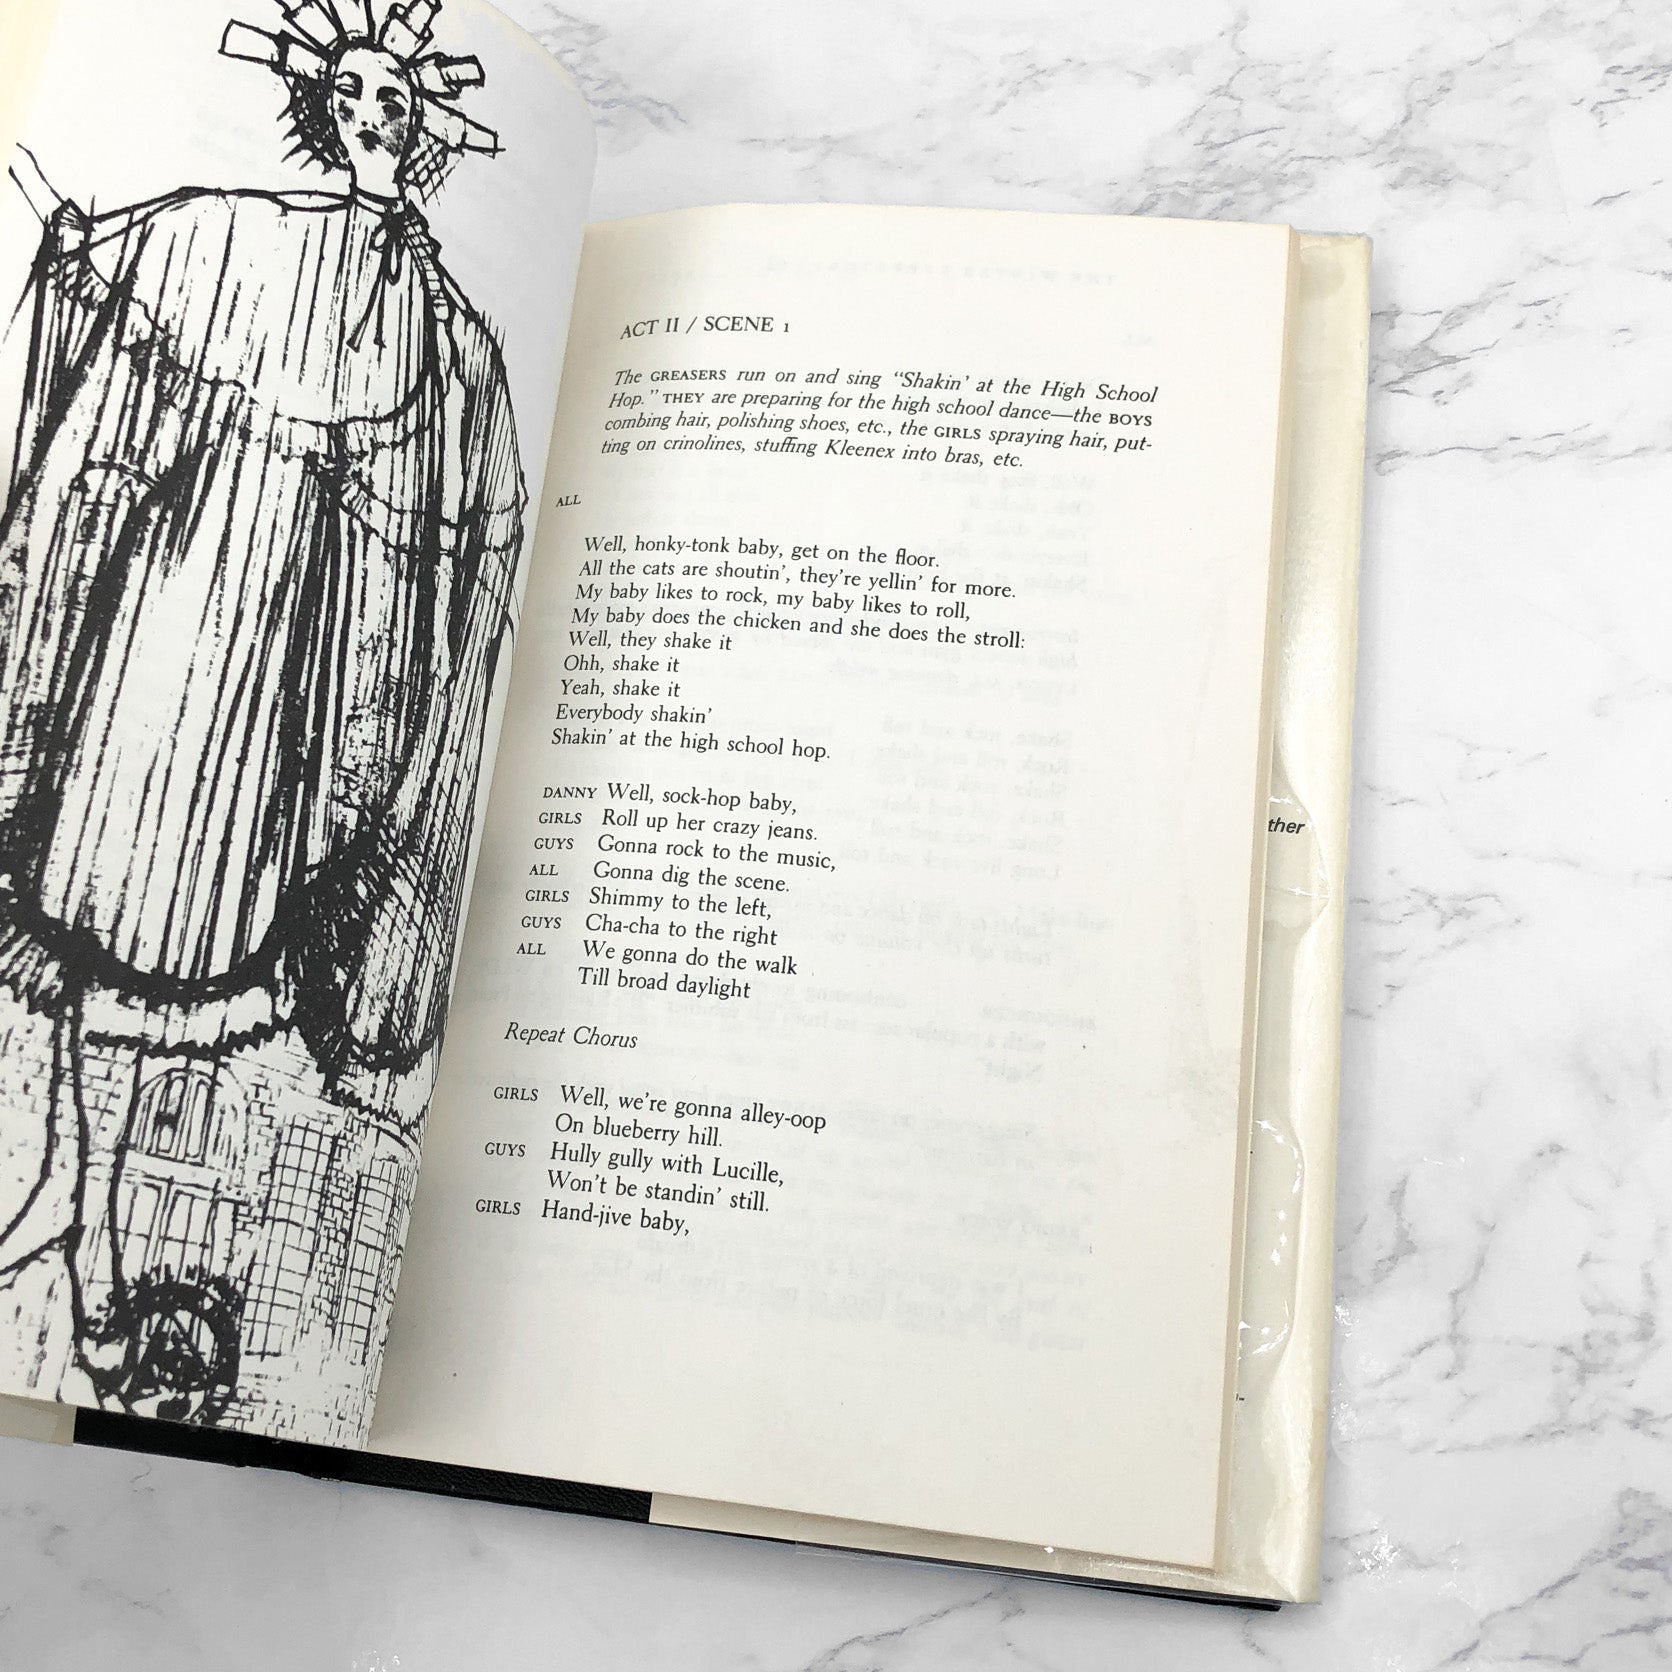 ACT II / SCENE 1
The GREASERS run on and sing "Shakin' at the High School
Hop." THEY are preparing for the high school dance—the BOYS
combing hair, polishing shoes, etc., the GIRLS spraying hair, put-
ting on crinolines, stuffing Kleenex into bras, etc.
ALL
Well, honky-tonk baby, get on the floor.
All the cats are shoutin', they're yellin' for more.
My baby likes to rock, my baby likes to roll,
My baby does the chicken and she does the stroll:
Well, they shake it
Ohh, shake it
Yeah, shake it
Everybody shakin'
Shakin' at the high school hop.
DANNY Well, sock-hop baby,
GIRLS Roll up her crazy jeans.
GUYS Gonna rock to the music,
ALL Gonna dig the scene.
GIRLS Shimmy to the left,
GUYS Cha-cha to the right
ALL We gonna do the walk
Till broad daylight
Repeat Chorus
GIRLS Well, we're gonna alley-oop
On blueberry hill.
GUYS Hully gully with Lucille,
Won't be standin' still.
GIRLS Hand-jive baby,
ther